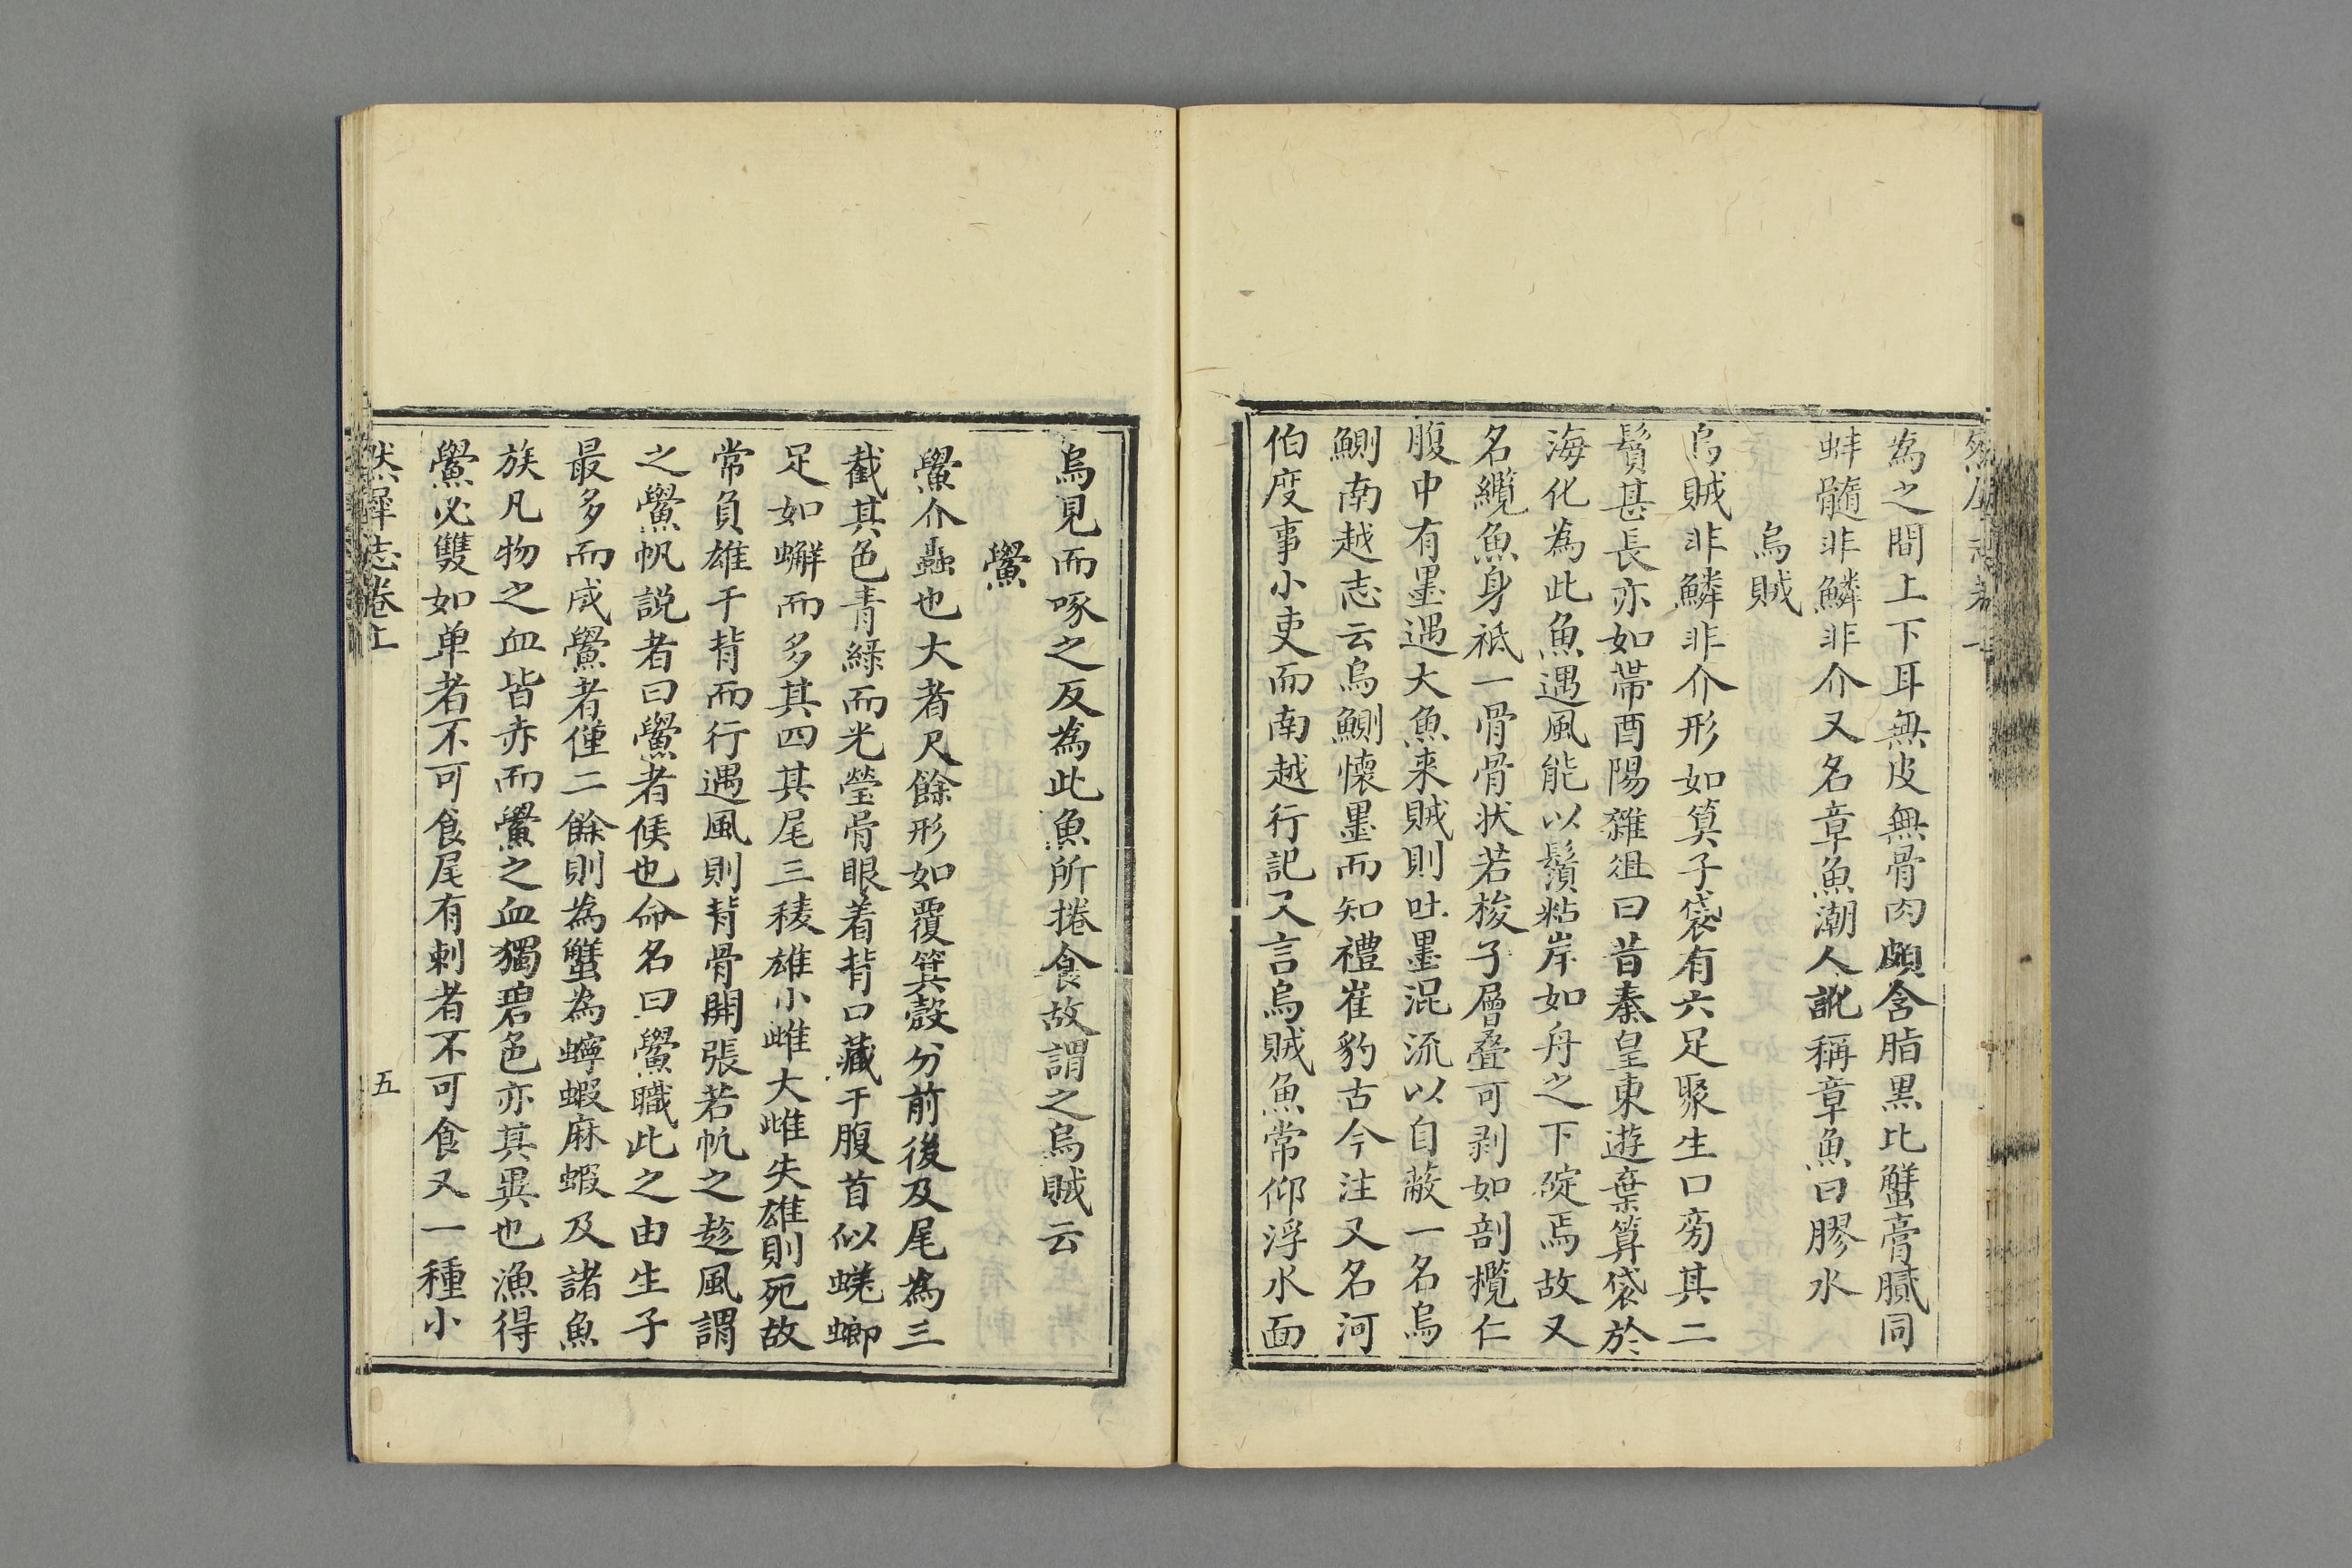 為之間上下耳無皮無骨肉頗含脂黒比蟹膏膩同
蚌髓非鱗非介又名章魚潮人訛稱章魚曰膠水
烏賊
烏賊非鱗非介形如算子袋有六足聚生口旁其二
鬚甚長亦如帶酉陽雜俎曰昔秦皇東遊棄算袋於
海化為此魚遇風能以鬚粘岸如舟之下碇焉故又
名纜魚身祗一骨骨状若梭子層叠可剥如剖欖仁
腹中有墨遇大魚来賊則吐墨混流以自蔽一名烏
鰂南越志云烏鰂懷墨而知禮崔豹古今注又名河
伯度事小吏而南越行記又言烏賊魚常仰浮水面
烏見而啄之反為此魚所捲食故謂之烏賊云
鱟
鱟介蟲也大者尺餘形如覆箕殼分前後及尾為三
截其色青綠而光瑩骨眼着背口藏于腹首似蜣螂
足如蠏而多其四其尾三稜雄小雌大雌失雄則死故
常負雄于背而行遇風則背骨開張若帆之趁風謂
之鱟帆説者曰鱟者候也命名曰鱟職此之由生子
最多而成鱟者僅二餘則為蟹為蠔蝦麻蝦及諸魚
族凡物之血皆赤而鱟之血獨碧色亦其異也漁得
鱟必雙如单者不可食尾有刺者不可食又一種小
然犀志卷上
五